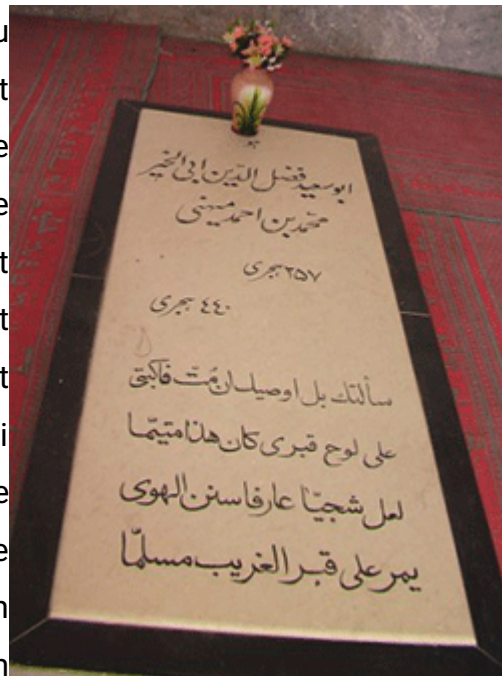 ابوسعید فضل الدّین ابی الخیر
محمّد بن احمد میهنی
۲۵۷ هجری
٤٤٠ هجری
سألتك بل اوصيك ان مُتّ فاكتبی
علی لوح قبری كان هذا متیّما
لعل شجیّا عارفا سنن الهوی
یمر علی قبر الغریب مسلّما